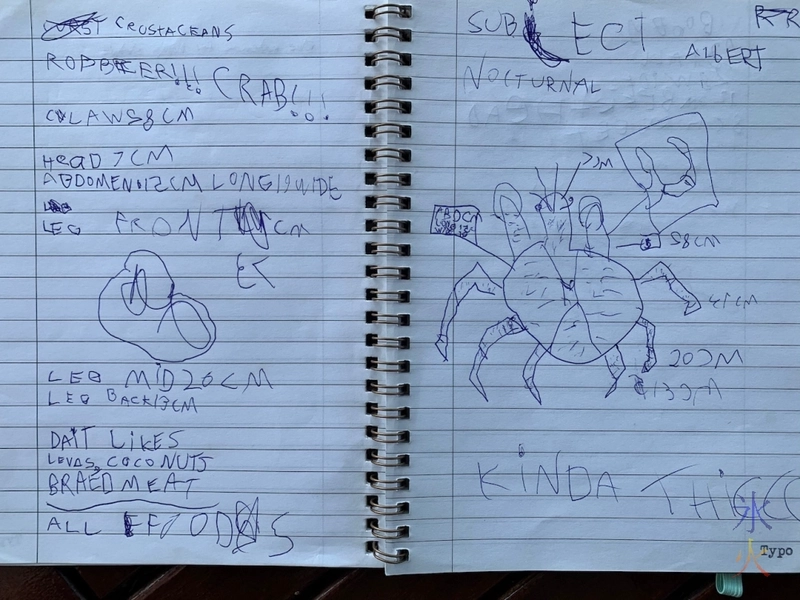 CRUSTACEANS
ROBBEER!!!
CRAB!!!
CLAWS 8CM
HEAD 7CM
ABDOMEN 12CM LONG 19 WIDE
LEG FRONT CM
LEG MID 20CM
LEG BACK 13CM
DAIT LIKES
LOVES COCONUTS
BRAED MEAT
ALL FOODS
SUBJECT
ALBERT
NOCTURNAL
58CM
20CM
13CM
KINDA THICC
Typo